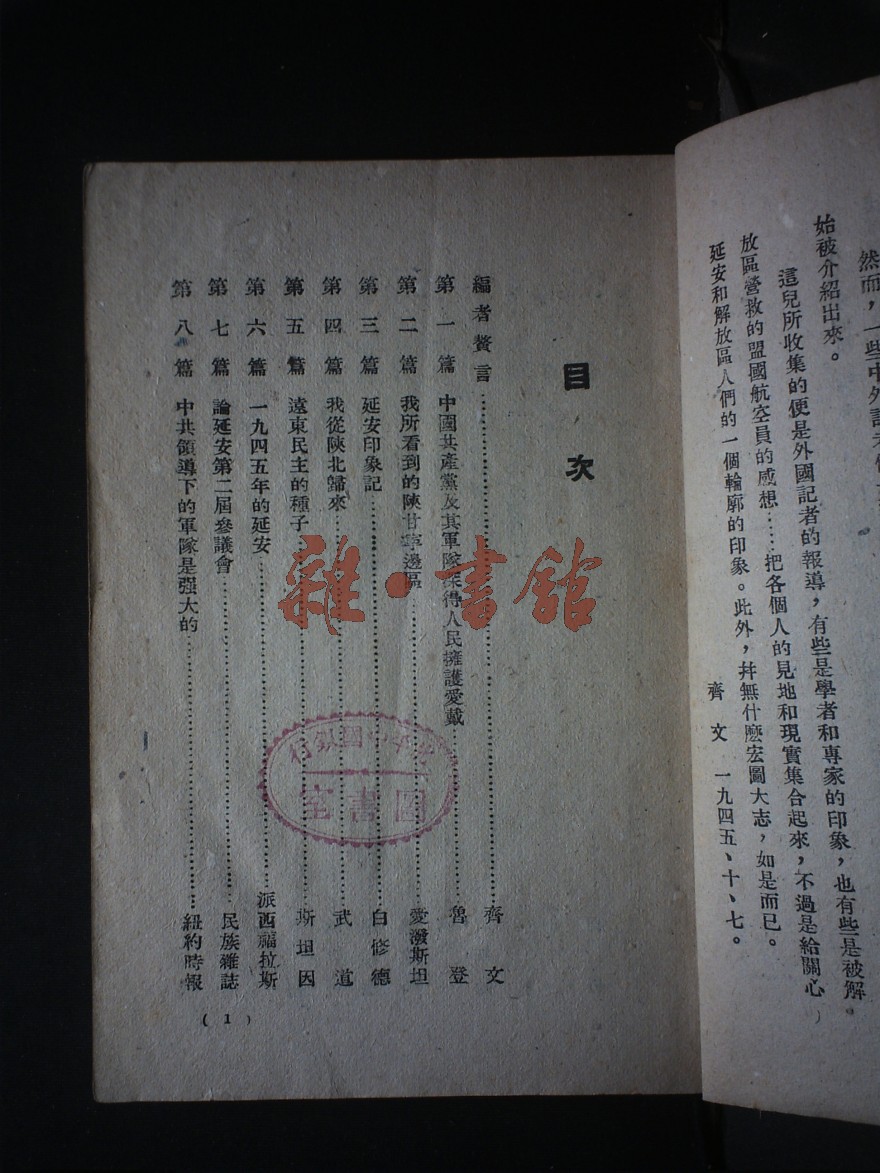 始被介紹出來。
這兒所收集的便是外國記者的報導，有些是學者和專家的印象，也有些是被解
放區營救的盟國航空員的感想……把各個人的見地和現實集合起來，不過是給關心
延安和解放區人們的一個輪廓的印象。此外，幷無什麼宏圖大志，如是而已。
齊文 一九四五、十、七。
目次
編者贅言……齊文
第一篇 中國共產黨及其軍隊深得人民擁護愛戴……魯登
第二篇 我所看到的陝甘寧邊區……愛潑斯坦
第三篇 延安印象記……白修德
第四篇 我從陝北歸來……武道
第五篇 遠東民主的種子……斯坦因
第六篇 一九四五年的延安……派西福拉斯
第七篇 論延安第二屆參議會……民族雜誌
第八篇 中共領導下的軍隊是强大的……紐約時報
(1)
圖書室
雜·書館